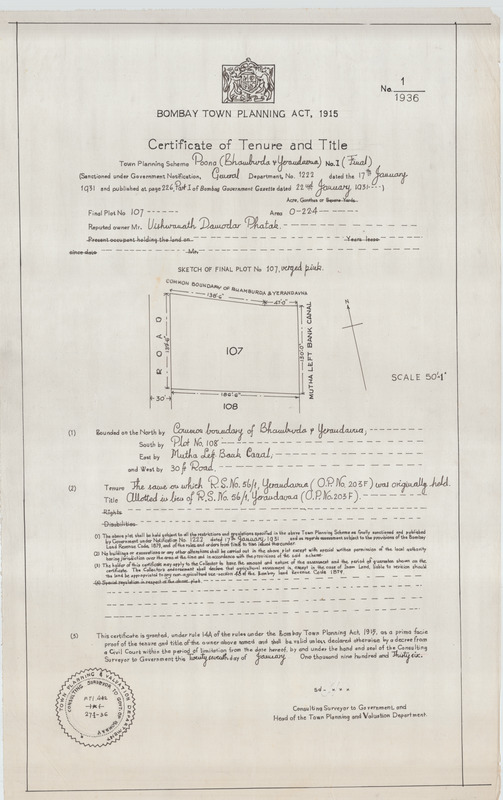 No. 1
1936
BOMBAY TOWN PLANNING ACT, 1915
Certificate of Tenure and Title
Town Planning Scheme Poona (Bhamburda & Yerandavna) No. I (Final)
(Sanctioned under Government Notification, General Department, No. 1222 dated the 17th January
1931 and published at page 226, Part I of Bombay Government Gazette dated 22nd January 1931----)
Acre, Gunthas or Square Yards.
Final Plot No 107 ------ Area 0-224------
Reputed owner Mr. Vishwanath Damodar Phatak.
Present occupant holding the land on Years lease
since date Mr.
SKETCH OF FINAL PLOT No 107, verged pink.
COMMON BOUNDARY OF BHAMBURDA & YERANDAVNA
ROAD
107
MUTHA LEFT BANK CANAL
N
SCALE 50'=1"
30'
108
(1) Bounded on the North by Common boundary of Bhamburda & Yerandavna,
South by Plot No. 108
East by Mutha Left Bank Canal,
and West by 30 ft Road.
(2) Tenure The same on which R.S. No. 56/1, Yerandavna (O.P. No. 203F) was originally held.
Title Allotted in lieu of R.S. No. 56/1, Yerandavna (O.P. No. 203F).
Rights
Disabilities.
(1) The above plot shall be held subject to all the restrictions and regulations specified in the above Town Planning Scheme as finally sanctioned and published
by Government under Notification No. 1222 dated 17th January 1931 and as regards assessment subject to the provisions of the Bombay
Land Revenue Code, 1879, and of the rules and orders from time to time issued thereunder.
(2) No buildings or excavations or any other alterations shall be carried out in the above plot except with special written permission of the local authority
having jurisdiction over the area at the time and in accordance with the provisions of the said scheme.
(3) The holder of this certificate may apply to the Collector to have the amount and nature of the assessment and the period of guarantee shown on the
certificate. The Collector's endorsement shall declare that agricultural assessment is, except in the case of Inam Land, liable to revision should
the land be appropriated to any non-agricultural use-section 48 of the Bombay Land Revenue Code 1879.
(4) Special regulation in respect of the above plot.
(3) This certificate is granted, under rule 14A of the rules under the Bombay Town Planning Act, 1915, as a prima facie
proof of the tenure and title of the owner above named and shall be valid unless declared otherwise by a decree from
a Civil Court within the period of limitation from the date hereof, by and under the hand and seal of the Consulting
Surveyor to Government this Twenty seventh day of January One thousand nine hundred and Thirty six.
Sd/- - - -
Consulting Surveyor to Government, and
Head of the Town Planning and Valuation Department.
TOWN PLANNING & VALUATION DEPARTMENT
CONSULTING SURVEYOR TO GOVT. OF BOMBAY